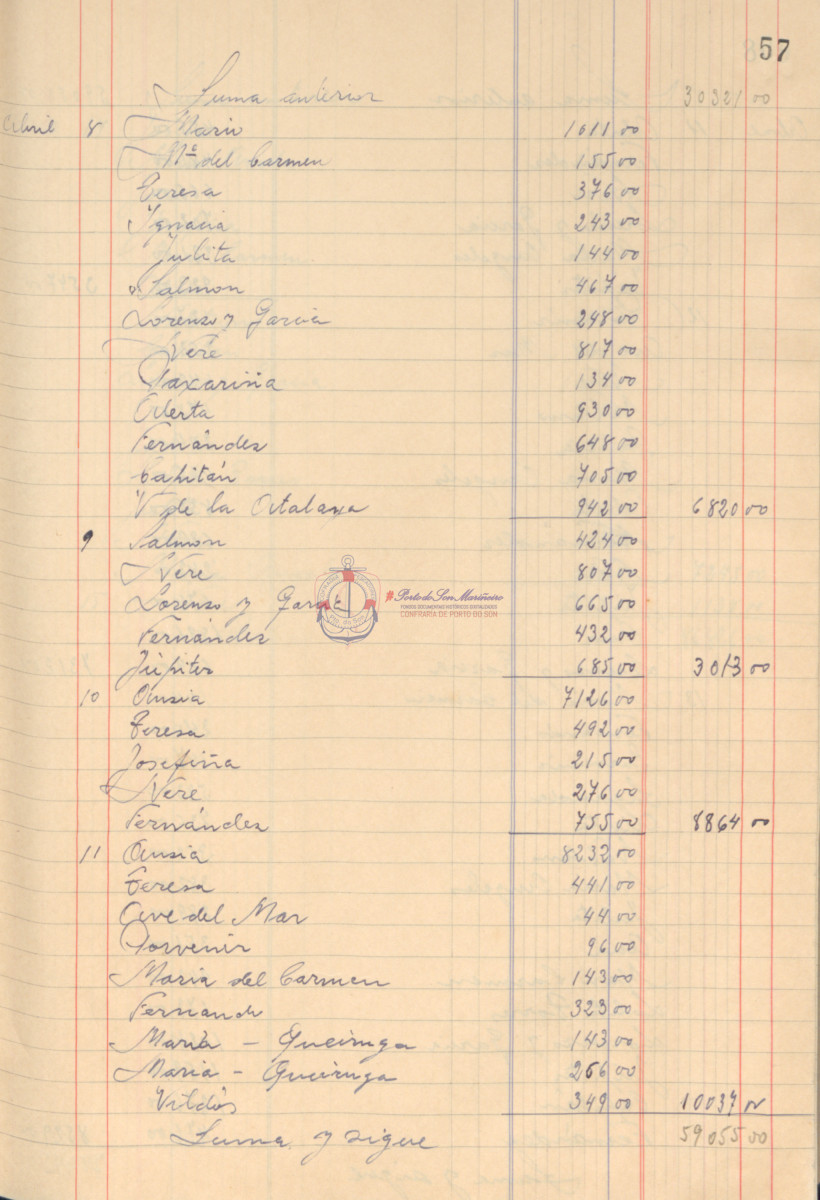 57
Suma anterior 30321 00
Abril 8 Mario 1011 00
Mª del Carmen 155 00
Teresa 376 00
Ignacia 243 00
Julita 144 00
Salmon 467 00
Lorenzo y Garcia 248 00
Nere 817 00
Naxariña 134 00
Alerta 930 00
Fernández 648 00
Capitán 705 00
V de la Atalaya 942 00 6820 00
9 Salmon 424 00
Nere 807 00
Lorenzo y Garcia 665 00
Fernández 432 00
Júpiter 685 00 3013 00
10 Ansia 7126 00
Teresa 492 00
Josefiña 215 00
Nere 276 00
Fernández 755 00 8864 00
11 Ansia 8232 00
Teresa 441 00
Ave del Mar 44 00
Porvenir 96 00
Maria del Carmen 143 00
Fernand 323 00
María - Queiruga 143 00
Maria - Queiruga 266 00
Vildós 349 00 10037 00
Suma y sigue 59055 00
Porto do Son Mariñeiro
FONDOS DOCUMENTAIS HISTÓRICOS DIXITALIZADOS
CONFRARÍA DE PORTO DO SON